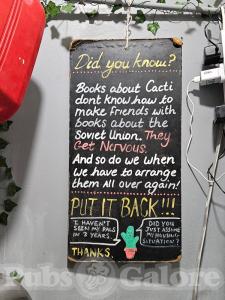 Did you know?
Books about Cacti
dont know how to
make friends with
books about the
Soviet Union. They
Get Nervous.
And so do we when
we have to arrange
them all over again!
PUT IT BACK!!!
I HAVEN'T
SEEN MY PALS
IN 3 YEARS.
DID YOU
JUST ASSUME
MY HOUSING
SITUATION?
THANKS.
Pubs Galore